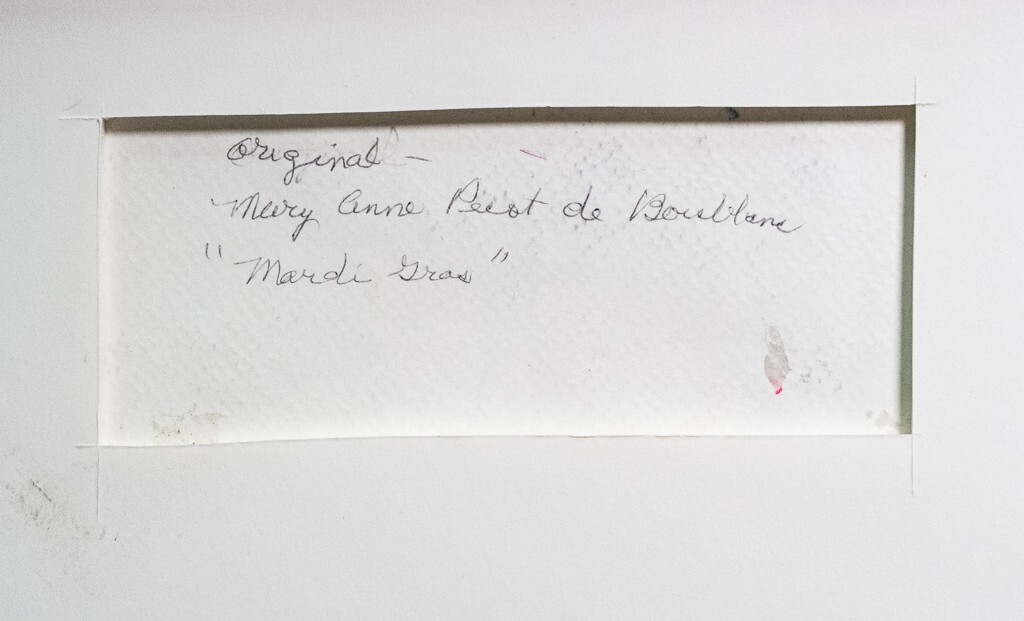 Original –
Mary Anne Pecot de Boisblanc
"Mardi Gras"